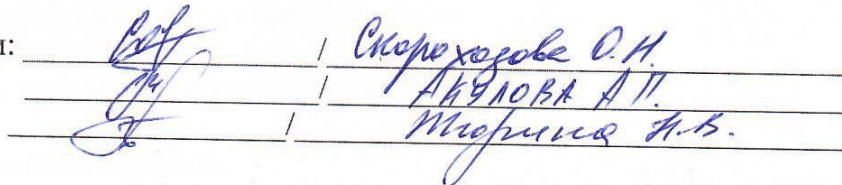 и: / Скороходова О.Н.
/ АКУЛОВА А.П.
/ Тюрина Н.В.